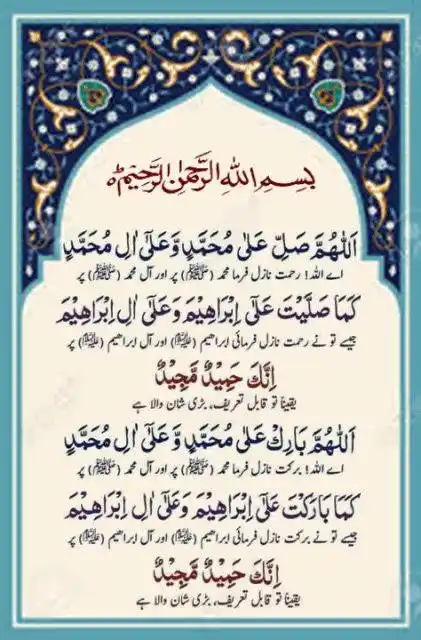 بِسْمِ اللهِ الرَّحْمٰنِ الرَّحِيْمِ
اَللّٰهُمَّ صَلِّ عَلٰى مُحَمَّدٍ وَّعَلٰٓى اٰلِ مُحَمَّدٍ
اے اللہ! رحمت نازل فرما محمد (ﷺ) پر اور آل محمد (ﷺ) پر
كَمَا صَلَّيْتَ عَلٰٓى اِبْرَاهِيْمَ وَعَلٰٓى اٰلِ اِبْرَاهِيْمَ
جیسے تو نے رحمت نازل فرمائی ابراھیم (علیہ السلام) اور آل ابراھیم (علیہ السلام) پر
اِنَّكَ حَمِيْدٌ مَّجِيْدٌ
یقیناً تو قابل تعریف، بڑی شان والا ہے
اَللّٰهُمَّ بَارِكْ عَلٰى مُحَمَّدٍ وَّعَلٰٓى اٰلِ مُحَمَّدٍ
اے اللہ! برکت نازل فرما محمد (ﷺ) پر اور آل محمد (ﷺ) پر
كَمَا بَارَكْتَ عَلٰٓى اِبْرَاهِيْمَ وَعَلٰٓى اٰلِ اِبْرَاهِيْمَ
جیسے تو نے برکت نازل فرمائی ابراھیم (علیہ السلام) اور آل ابراھیم (علیہ السلام) پر
اِنَّكَ حَمِيْدٌ مَّجِيْدٌ
یقیناً تو قابل تعریف، بڑی شان والا ہے